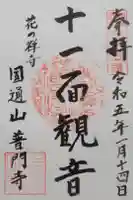 奉拝
令和五年一月十四日
十一面観音
花の寺
国通山 普門寺